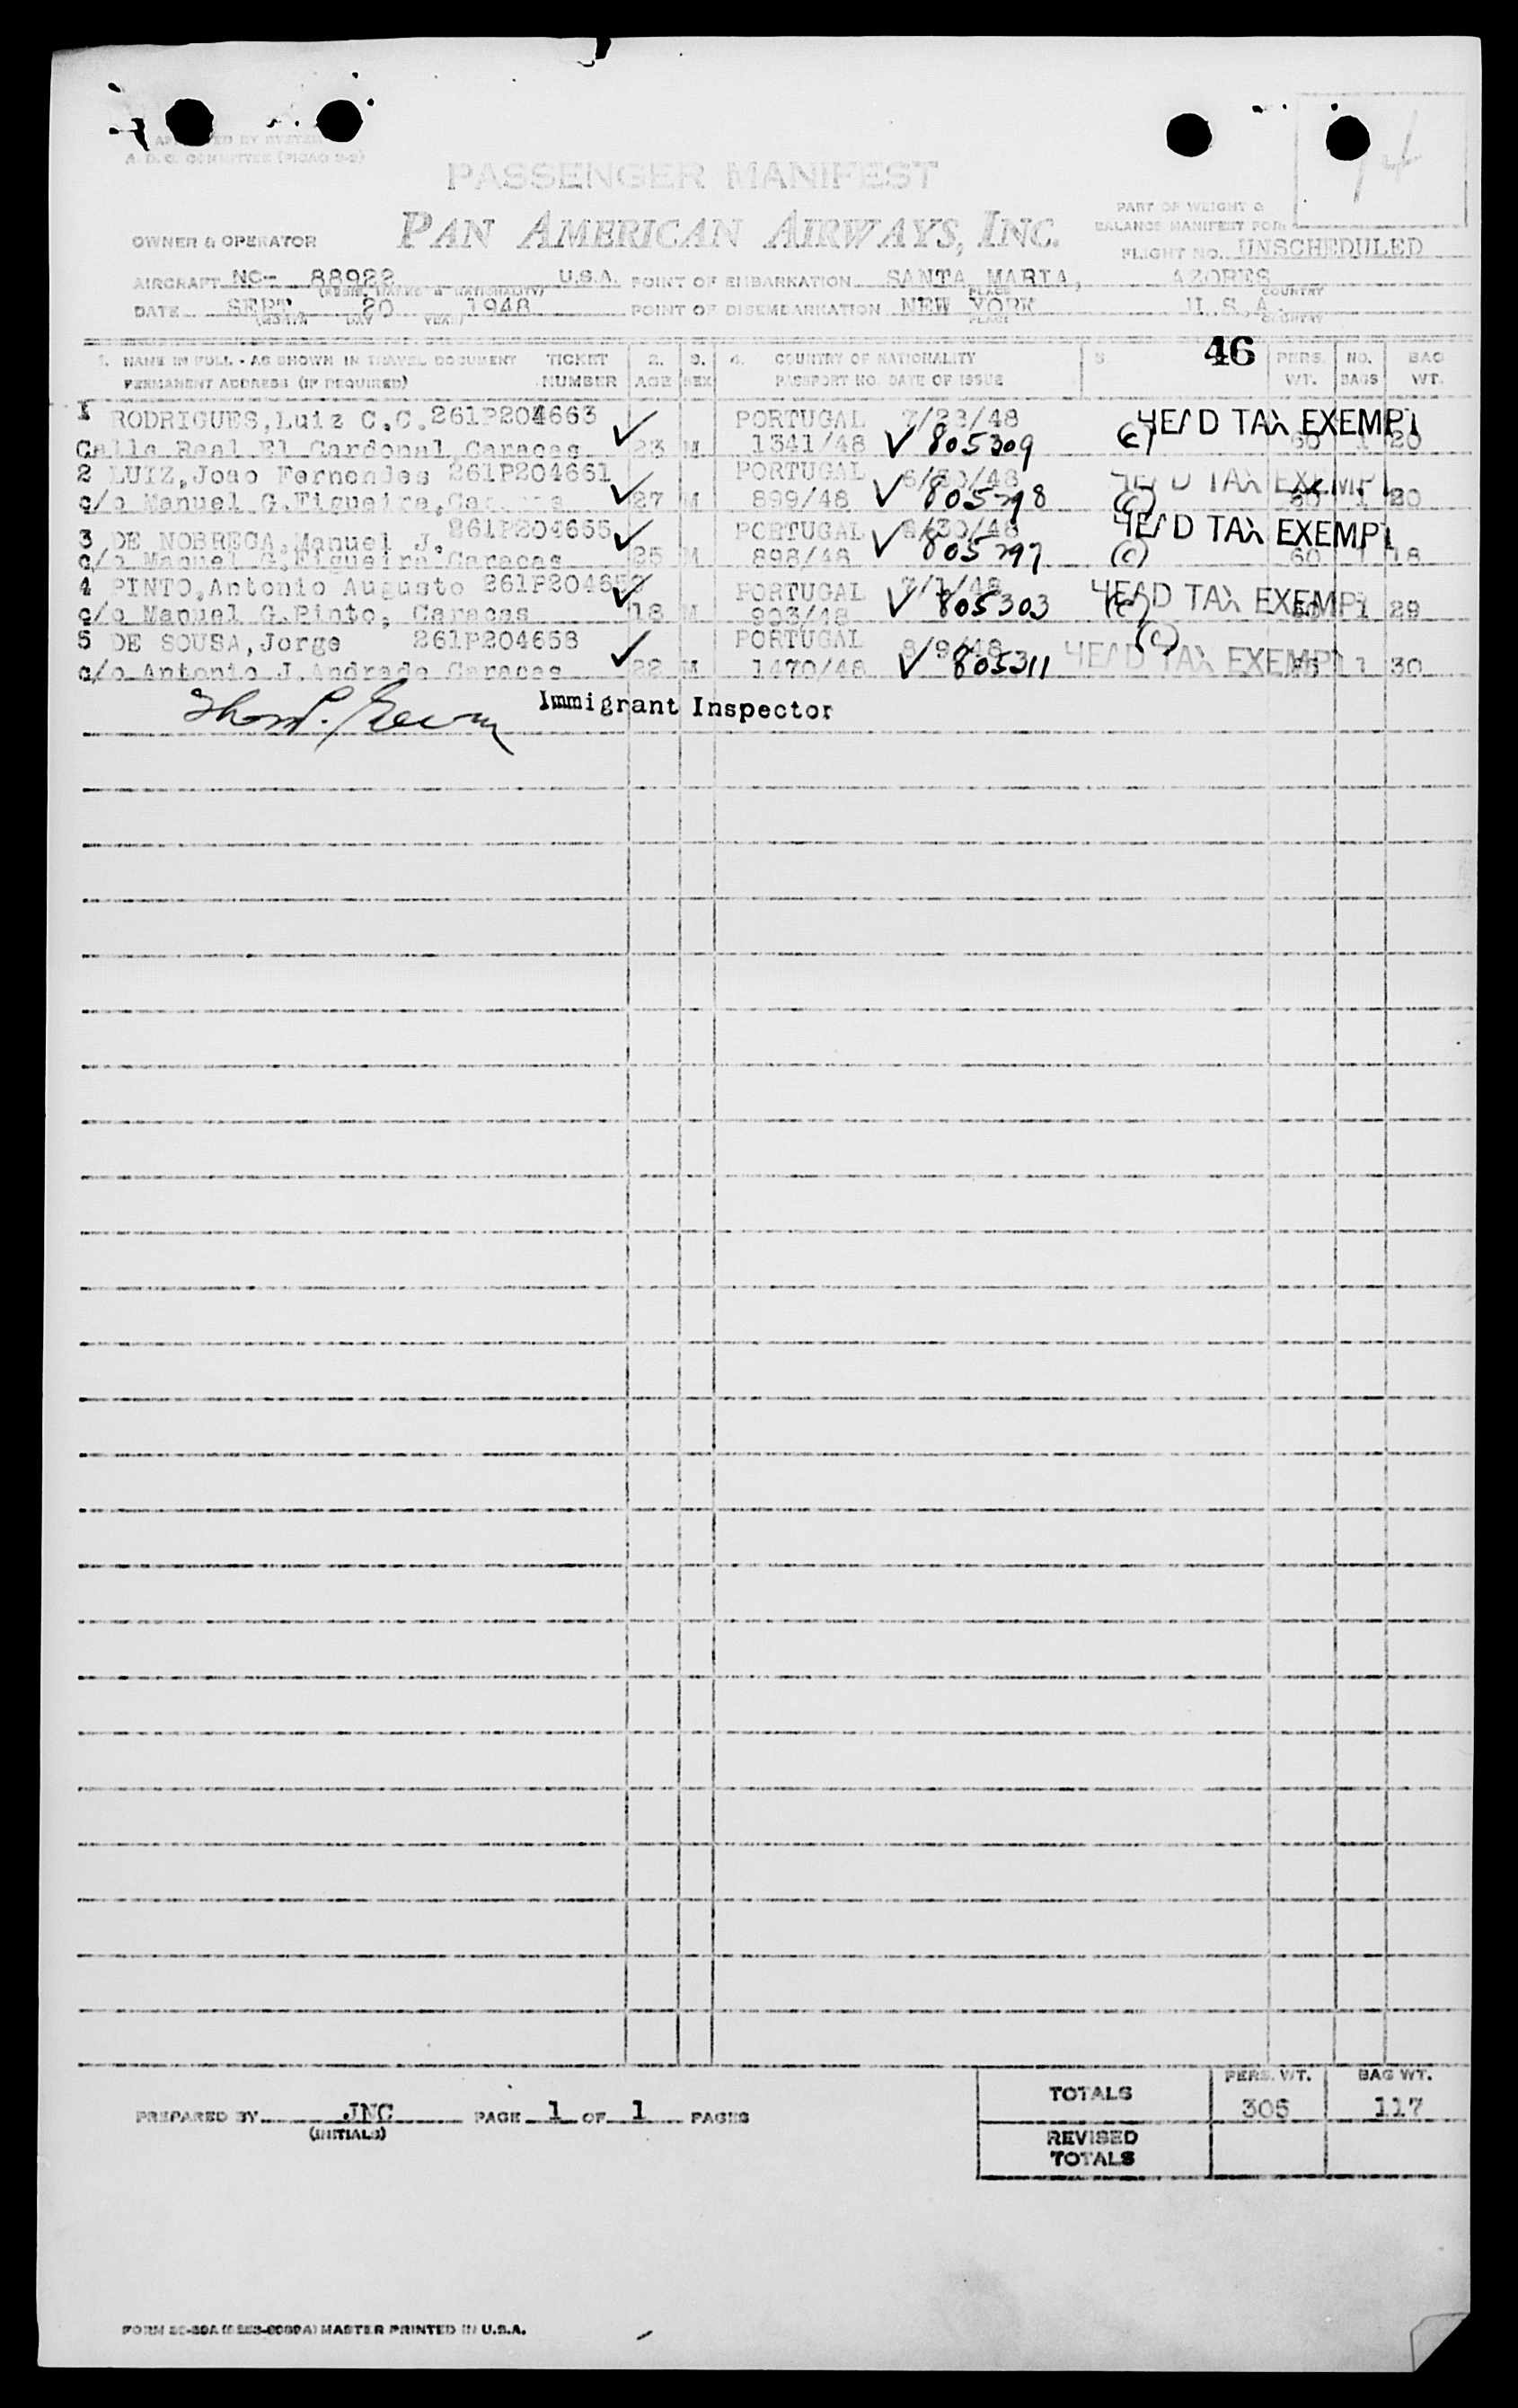 A. D. C. COMMITTEE (PICAO 2-2)
14
PASSENGER MANIFEST
PART OF WEIGHT &
OWNER & OPERATOR PAN AMERICAN AIRWAYS, INC. BALANCE MANIFEST FOR:
FLIGHT NO. UNSCHEDULED
AIRCRAFT NC- 88922 U.S.A. POINT OF EMBARKATION SANTA MARIA, AZORES
(REGIS. MARKS & NATIONALITY) PLACE COUNTRY
DATE SEPT 20 1948 POINT OF DISEMBARKATION NEW YORK U.S.A.
(MONTH DAY YEAR) PLACE COUNTRY
1. NAME IN FULL - AS SHOWN IN TRAVEL DOCUMENT TICKET 2. 3. 4. COUNTRY OF NATIONALITY 5 46 PERS. NO. BAG
PERMANENT ADDRESS (IF REQUIRED) NUMBER AGE SEX PASSPORT NO. DATE OF ISSUE WT. BAGS WT.
1 RODRIGUES, Luiz C.C. 261P204663 PORTUGAL 7/23/48 HEAD TAX EXEMPT
Calle Real El Cardonal, Caracas 23 M 1341/48 ✓ 805309 (c) 60 1 20
2 LUIZ, Joao Fernendes 261P204661 PORTUGAL 6/30/48 HEAD TAX EXEMPT
c/o Manuel G. Figueira, 27 M 899/48 ✓ 805298 (c) 1 20
3 DE NOBREGA, Manuel J. 261P204655 PORTUGAL 6/30/48 HEAD TAX EXEMPT
c/o Manuel G. Figueira Caracas 25 M 898/48 ✓ 805297 (c) 60 1 18
4 PINTO, Antonio Augusto PORTUGAL 7/1/48 HEAD TAX EXEMPT
c/o Manuel G. Pinto, Caracas 18 M 903/48 ✓ 805303 (c) 60 1 29
5 DE SOUSA, Jorge 261P204658 PORTUGAL 8/9/48 (c)
c/o Antonio J. Andrade Caracas 22 M 1470/48 ✓ 805311 HEAD TAX EXEMPT 1 30
Immigrant Inspector
TOTALS PERS. WT. BAG WT.
PREPARED BY JNC PAGE 1 OF 1 PAGES 305 117
(INITIALS)
REVISED
TOTALS
MASTER PRINTED IN U.S.A.